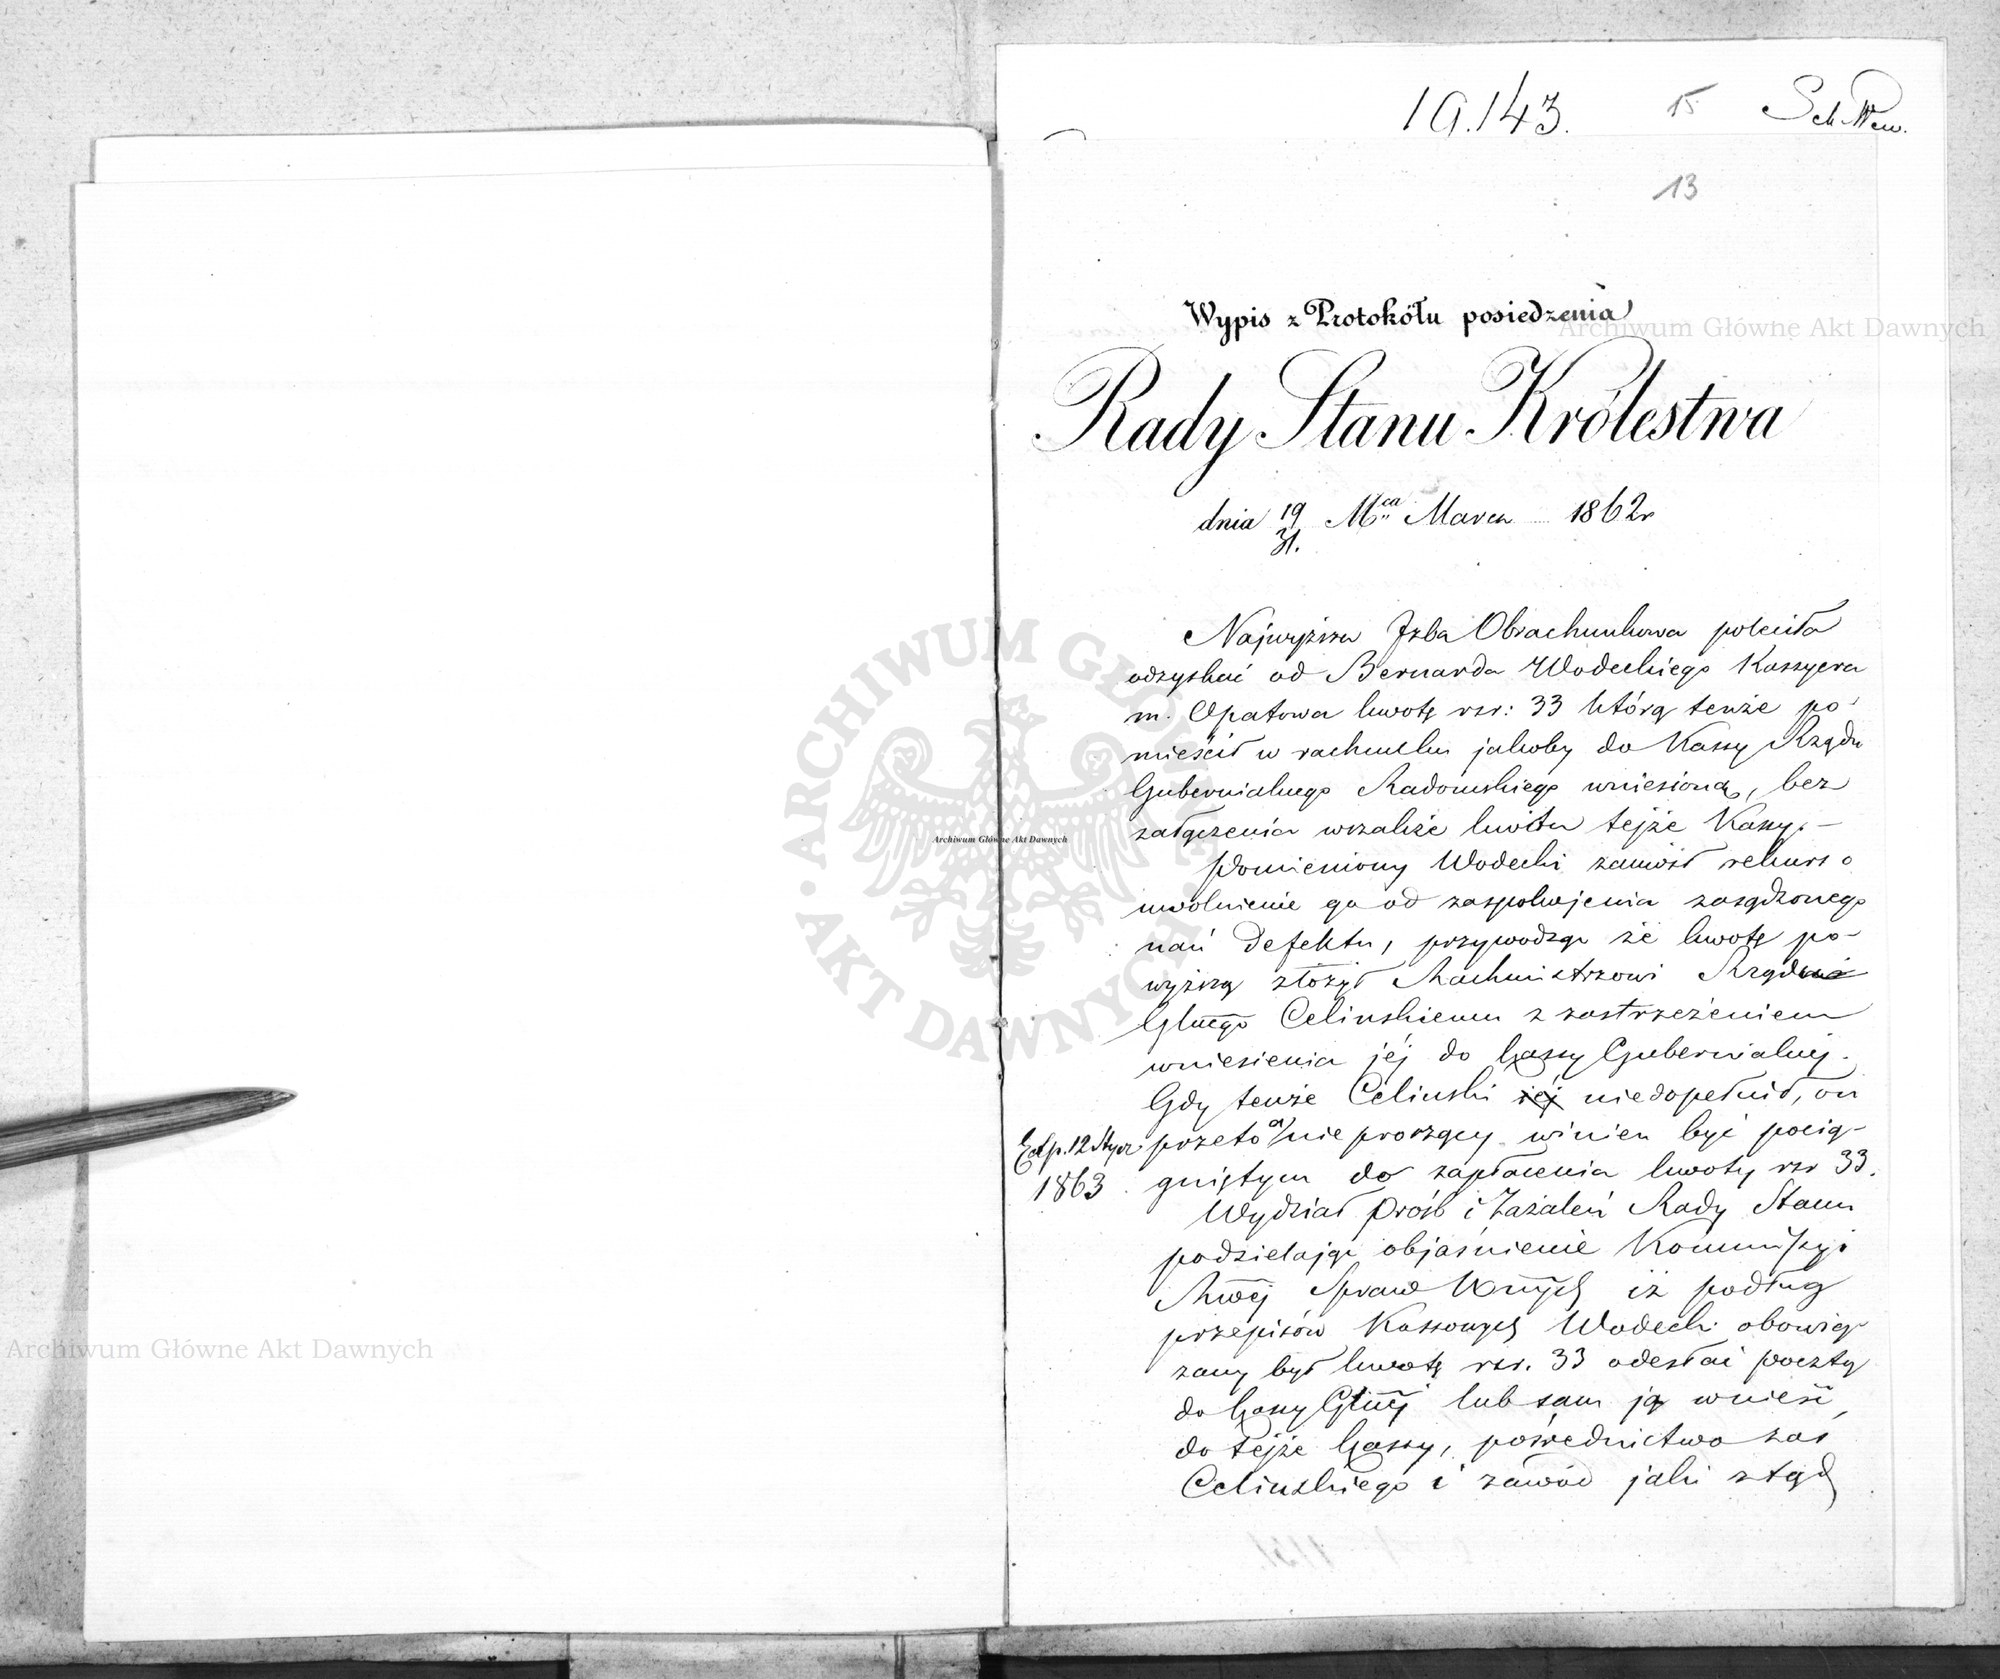 19.143.
15
Sek. Pew.
13
Wypis z Protokółu posiedzenia
Rady Stanu Królestwa
dnia 19/31. Mca Marca 1862r
Najwyższa Izba Obrachunkowa poleciła
odzyskać od Bernarda Wodeckiego Kassyera
m. Opatowa kwotę rsr: 33 którą tenże po-
mieścił w rachunku jakoby do Kassy Rządu
Gubernialnego Radomskiego wniesioną, bez
załączenia wszakże kwitu tejże Kassy.—
Pomieniony Wodecki zaniósł rekurs o
uwolnienie go od zaspokojenia zasądzonego
nań defektu, przywodząc że kwotę po-
wyższą złożył Rachmistrzowi Rządu
Glnego Celińskiemu z zastrzeżeniem
wniesienia jéj do Kassy Gubernialnéj.
Gdy tenże Celiński jéj niedopełnił, on
przeto a nie proszący winien być pocią-
gniętym do zapłacenia kwoty rsr 33.
Exp. 12 Stycz
1863
Wydział Próśb i Zażaleń Rady Stanu
podzielając objaśnienie Kommissyi
Rwéj Spraw Wnych iż podług
przepisów Kassowych Wodecki obowią-
zany był kwotę rsr. 33 odesłać pocztą
do Kassy Glnéj lub sam ją wnieść
do tejże Kassy, pośrednictwo zaś
Celińskiego i zawód jaki ztąd
Archiwum Główne Akt Dawnych
Archiwum Główne Akt Dawnych
Archiwum Główne Akt Dawnych
ARCHIWUM GŁÓWNE AKT DAWNYCH